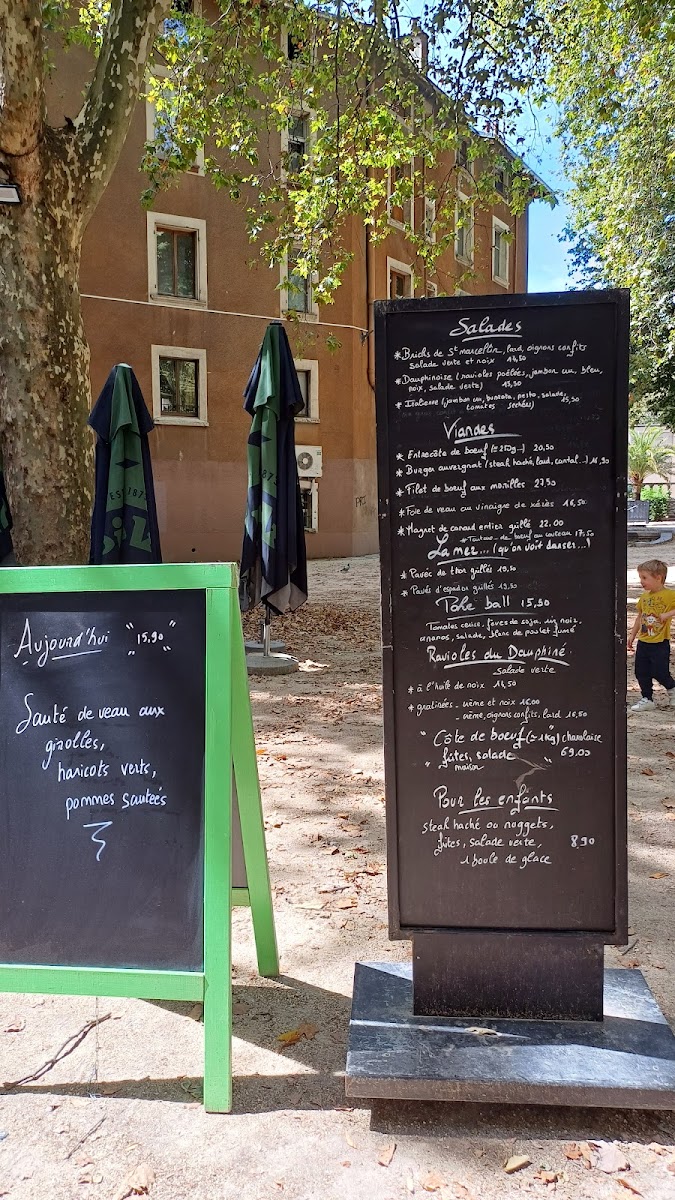 Aujourd'hui "15,90"
Sauté de veau aux
girolles,
haricots verts,
pommes sautées
EST 1873
1873
Salades
* Bricks de St marcellin, lard, oignons confits
salade verte et noix 14,50
* Dauphinoise (ravioles poêlées, jambon cru, bleu,
noix, salade verte) 15,50
* Italienne (jambon cru, burrata, pesto, salade,
tomates séchées) 15,50
Viandes
* Entrecôte de boeuf (± 250g...) 20,50
* Burger auvergnat (steak haché, lard, cantal...) 16,50
* Filet de boeuf aux morilles 27,50
* Foie de veau au vinaigre de xérès 16,50
* Magret de canard entier grillé 22.00
* Tartare de boeuf au couteau 17,50
La mer... (qu'on voit danser...)
* Pavés de thon grillés 19,50
* Pavés d'espadon grillés 19,50
Pöke ball 15,50
Tomates cerise, fèves de soja, riz noir,
ananas, salade, blanc de poulet fumé
Ravioles du Dauphiné
Salade verte
* à l'huile de noix 14,50
* gratinées - crème et noix 16.00
- crème, oignons confits, lard 16,50
"Côte de boeuf (± 1kg) charolaise
frites, salade" 69.00
maison
Pour les enfants
steak haché ou nuggets,
frites, salade verte, 8,90
1 boule de glace